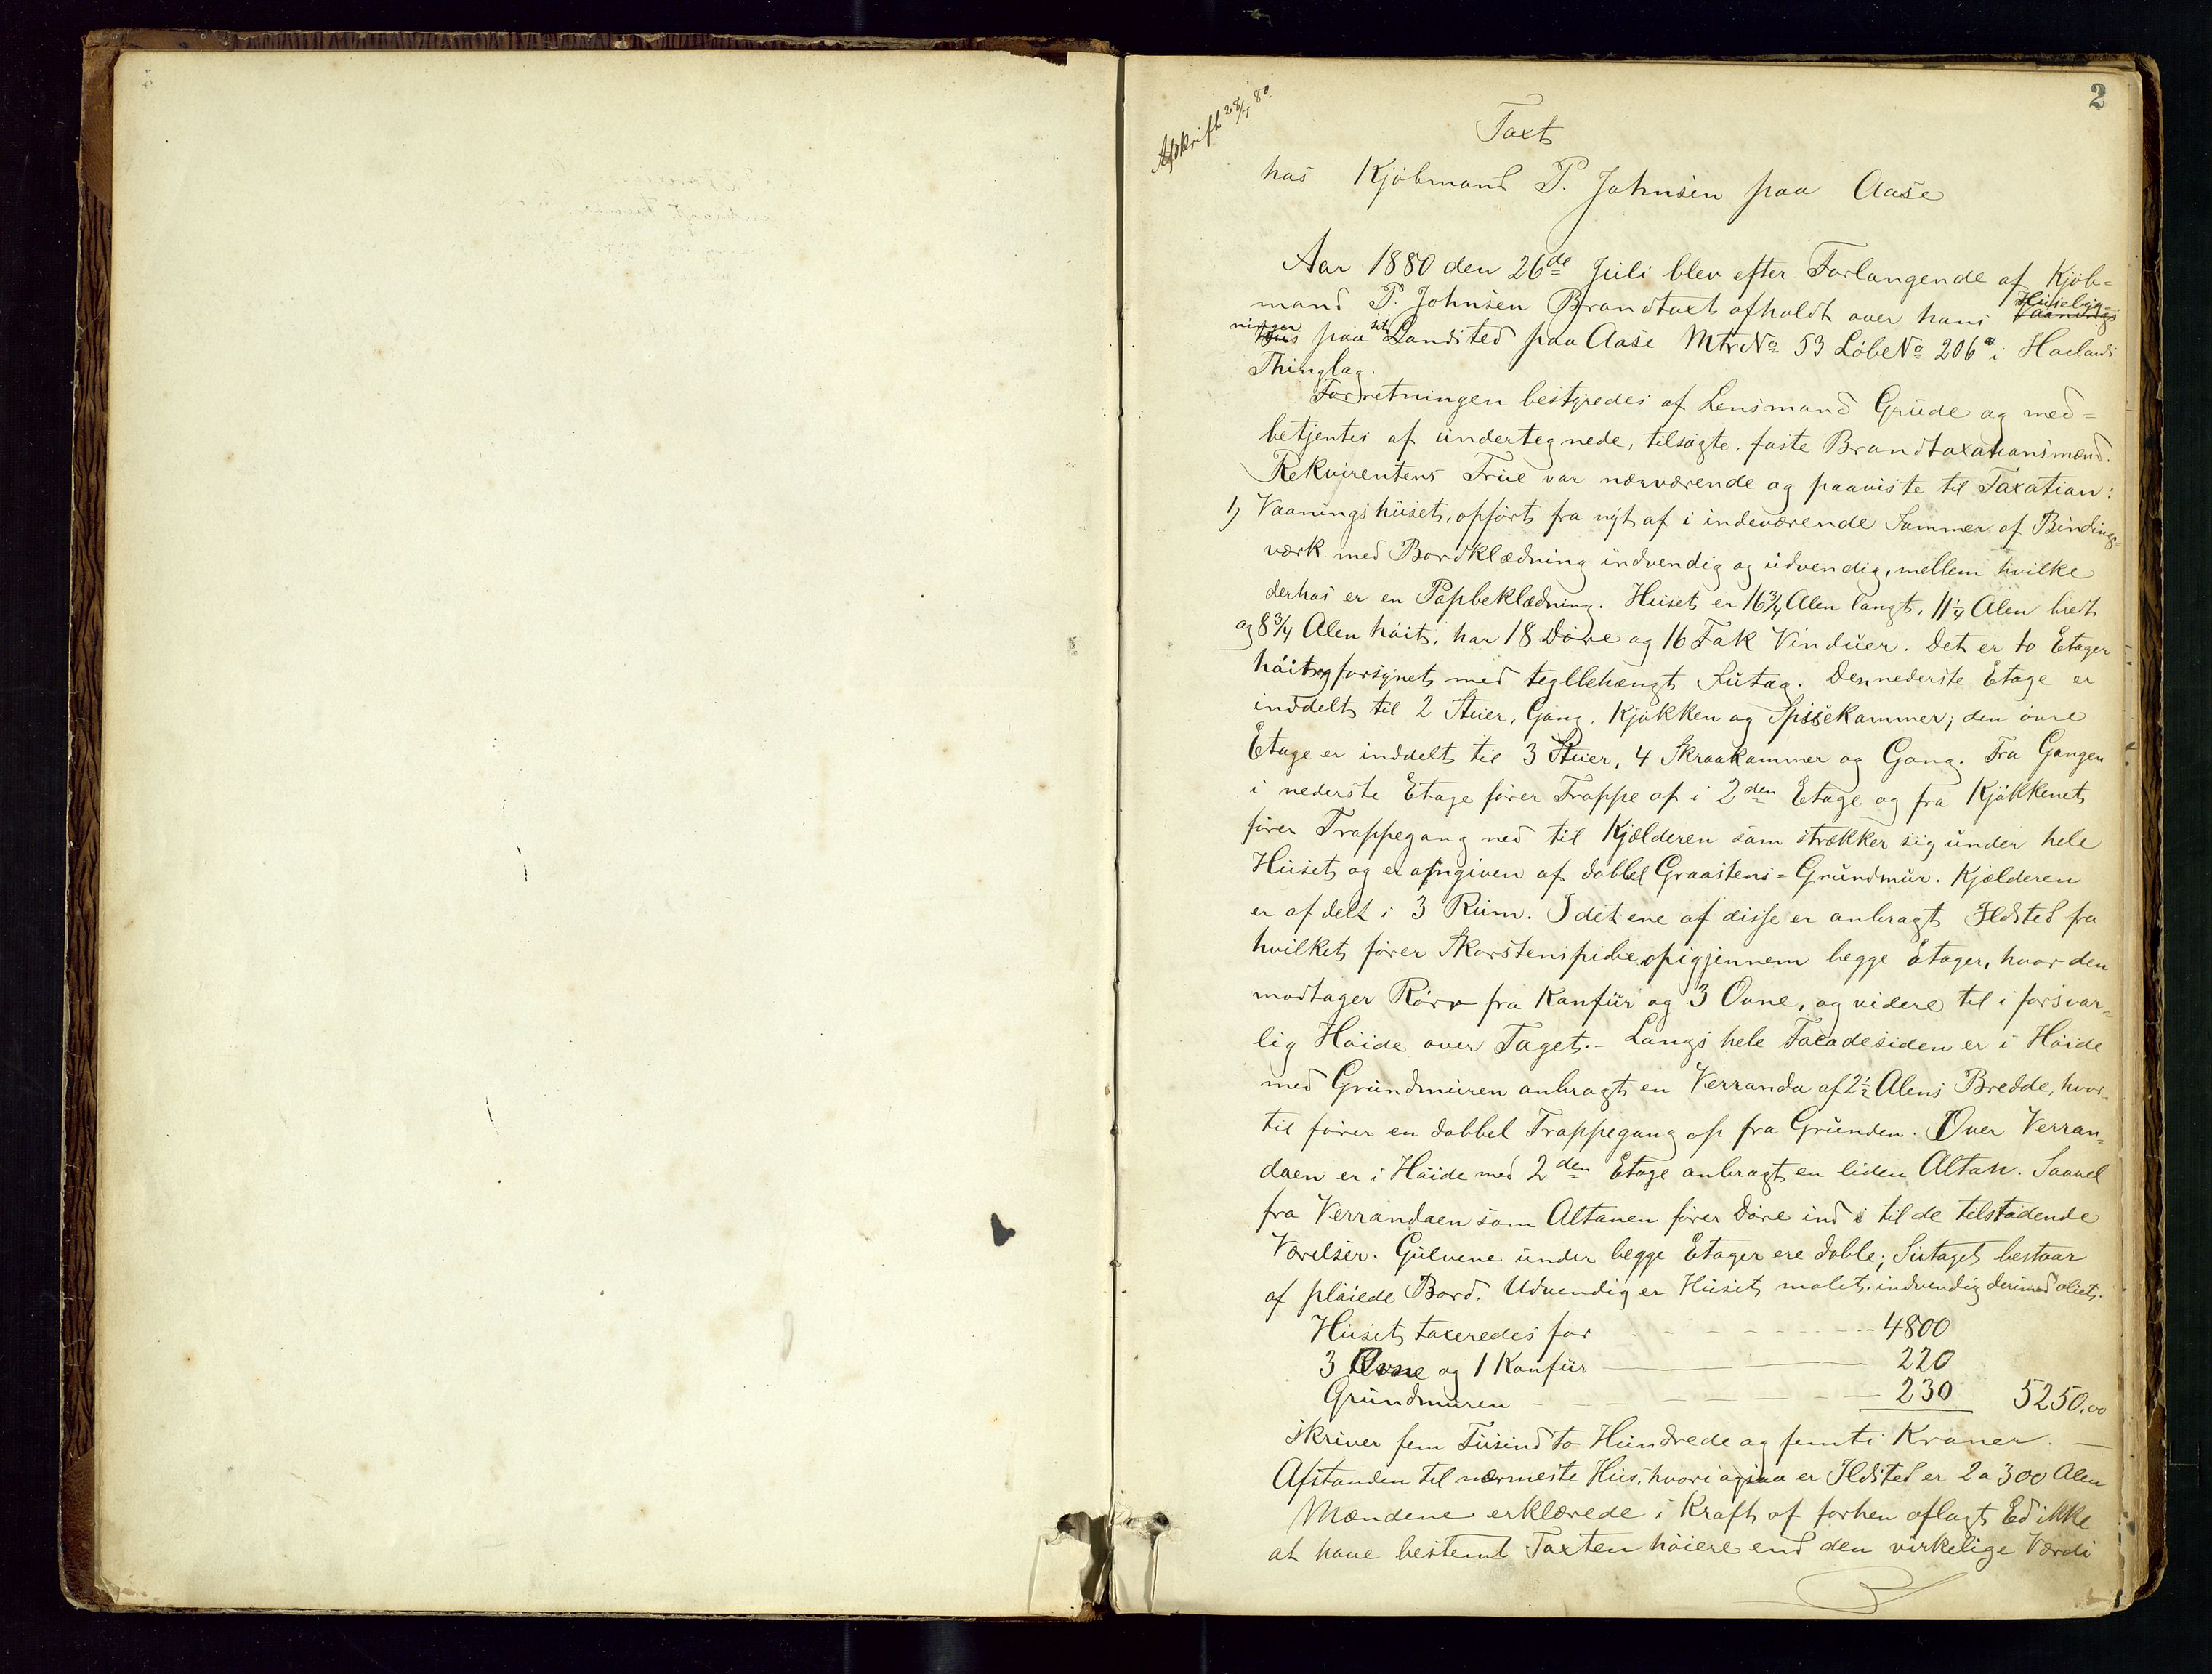 2
Afskrift 28/7 80.
Taxt
hos Kjöbmand P. Johnsen paa Aase
Aar 1880 den 26de Juli blev efter Forlangende af Kjöb=
mand P. Johnsen Brandtaxt afholdt over hans Husebyg=
Vaanings
ninger paa sit Landsted paa Aase Mtr No 53 Löbe No 206a i Haalands
Thinglag.
Forretningen bestyredes af Lensmand Grude og med=
betjentes af undertegnede, tilsagte, faste Brandtaxationsmænd.
Rekvirentens Frue var nærværende og paaviste til Taxation:
1) Vaaningshuset, opfört fra nyt af i indeværende Sommer af Bindings=
værk med Bordklædning indvendig og udvendig, mellem hvilke
derhos er en Papbeklædning. Huset er 16 3/4 Alen langt, 11 1/4 Alen bredt
og 8 3/4 Alen höit, har 18 Döre og 16 Fak Vinduer. Det er to Etager
höit og forsynet med teglbehængt Sutag. Den nederste Etage er
inddelt til 2 Stuer, Gang, Kjökken og Spisekammer; den övre
Etage er inddelt til 3 Stuer, 4 Skraakammer og Gang. Fra Gangen
i nederste Etage förer Trappe op i 2den Etage og fra Kjökkenet
förer Trappegang ned til Kjælderen som strækker sig under hele
Huset og er omgiven af dobbel Graastens=Grundmur. Kjælderen
er afdelt i 3 Rum. I det ene af disse er anbragt Ildsted fra
hvilket förer Skorstenspibe op igjennem begge Etager, hvor den
modtager Rör fra Komfür og 3 Ovne, og videre til i forsvar=
lig Höide over Taget. - Langs hele Facadesiden er i Höide
med Grundmuren anbragt en Verranda af 2 1/2 Alens Bredde, hvor=
til förer en dobbel Trappegang op fra Grunden. Over Verran=
daen er i Höide med 2den Etage anbragt en liden Altan. Saavel
fra Verrandaen som Altanen förer Döre ind i til de tilstödende
Værelser. Gulvene under begge Etager ere doble; Sutaget bestaar
af plöiede Bord. Udvendig er Huset malet, indvendig derimod oliet.
Huset taxeredes for - - - - - 4800
3 Ovne og 1 Komfür — 220
Grundmuren - - - - - 230 5250,00
skriver fem Tusind to Hundrede og femti Kroner. —
Afstanden til nærmeste Hus, hvori ogsaa er Ildsted er 2 a 300 Alen
Mændene erklærede i Kraft af forhen aflagt Ed ikke
at have bestemt Taxten höiere end den virkelige Værdi